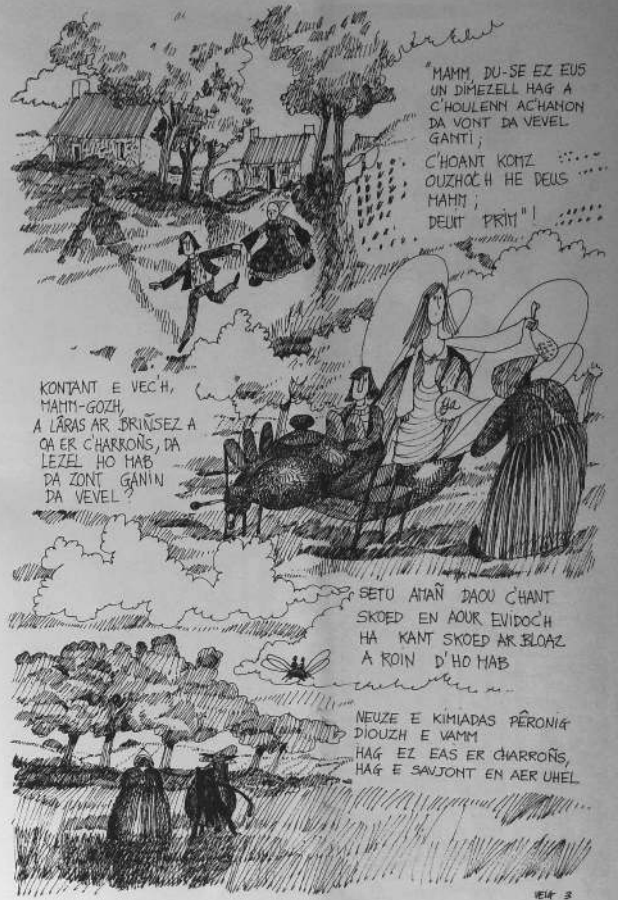 "MAMM, DU-SE EZ EUS
UN DIMEZELL HAG A
C'HOULENN AC'HANON
DA VONT DA VEVEL
GANTI ;
C'HOANT KOMZ
OUZHOC'H HE DEUS
MAMM ;
DEUIT PRIM" !
KONTANT E VEC'H,
MAMM-GOZH,
A LÂRAS AR BRIÑSEZ A
OA ER C'HARROÑS, DA
LEZEL HO MAB
DA ZONT GANIN
DA VEVEL ?
Ya
SETU AMAÑ DAOU C'HANT
SKOED EN AOUR EVIDOC'H
HA KANT SKOED AR BLOAZ
A ROIN D'HO MAB
NEUZE E KIMIADAS PÊRONIG
DIOUZH E VAMM
HAG EZ EAS ER C'HARROÑS,
HAG E SAVJONT EN AER UHEL
3